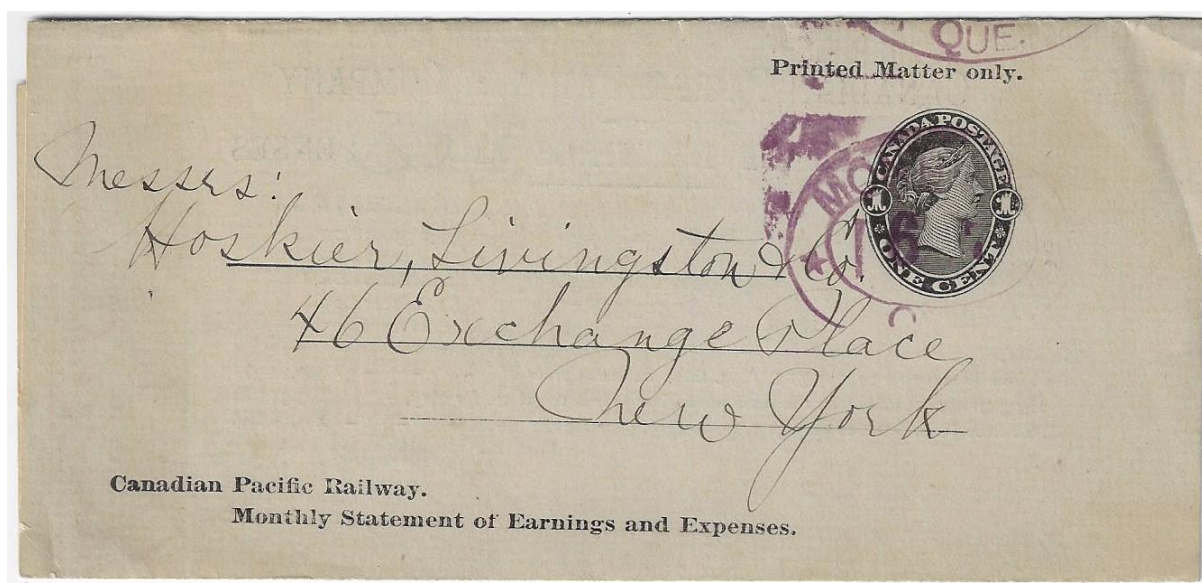 QUE.
Printed Matter only.
CANADA POSTAGE
1 1
ONE CENT
MO
Messrs:
Hoskier, Livingston & Co.
46 Exchange Place
New York
Canadian Pacific Railway.
Monthly Statement of Earnings and Expenses.